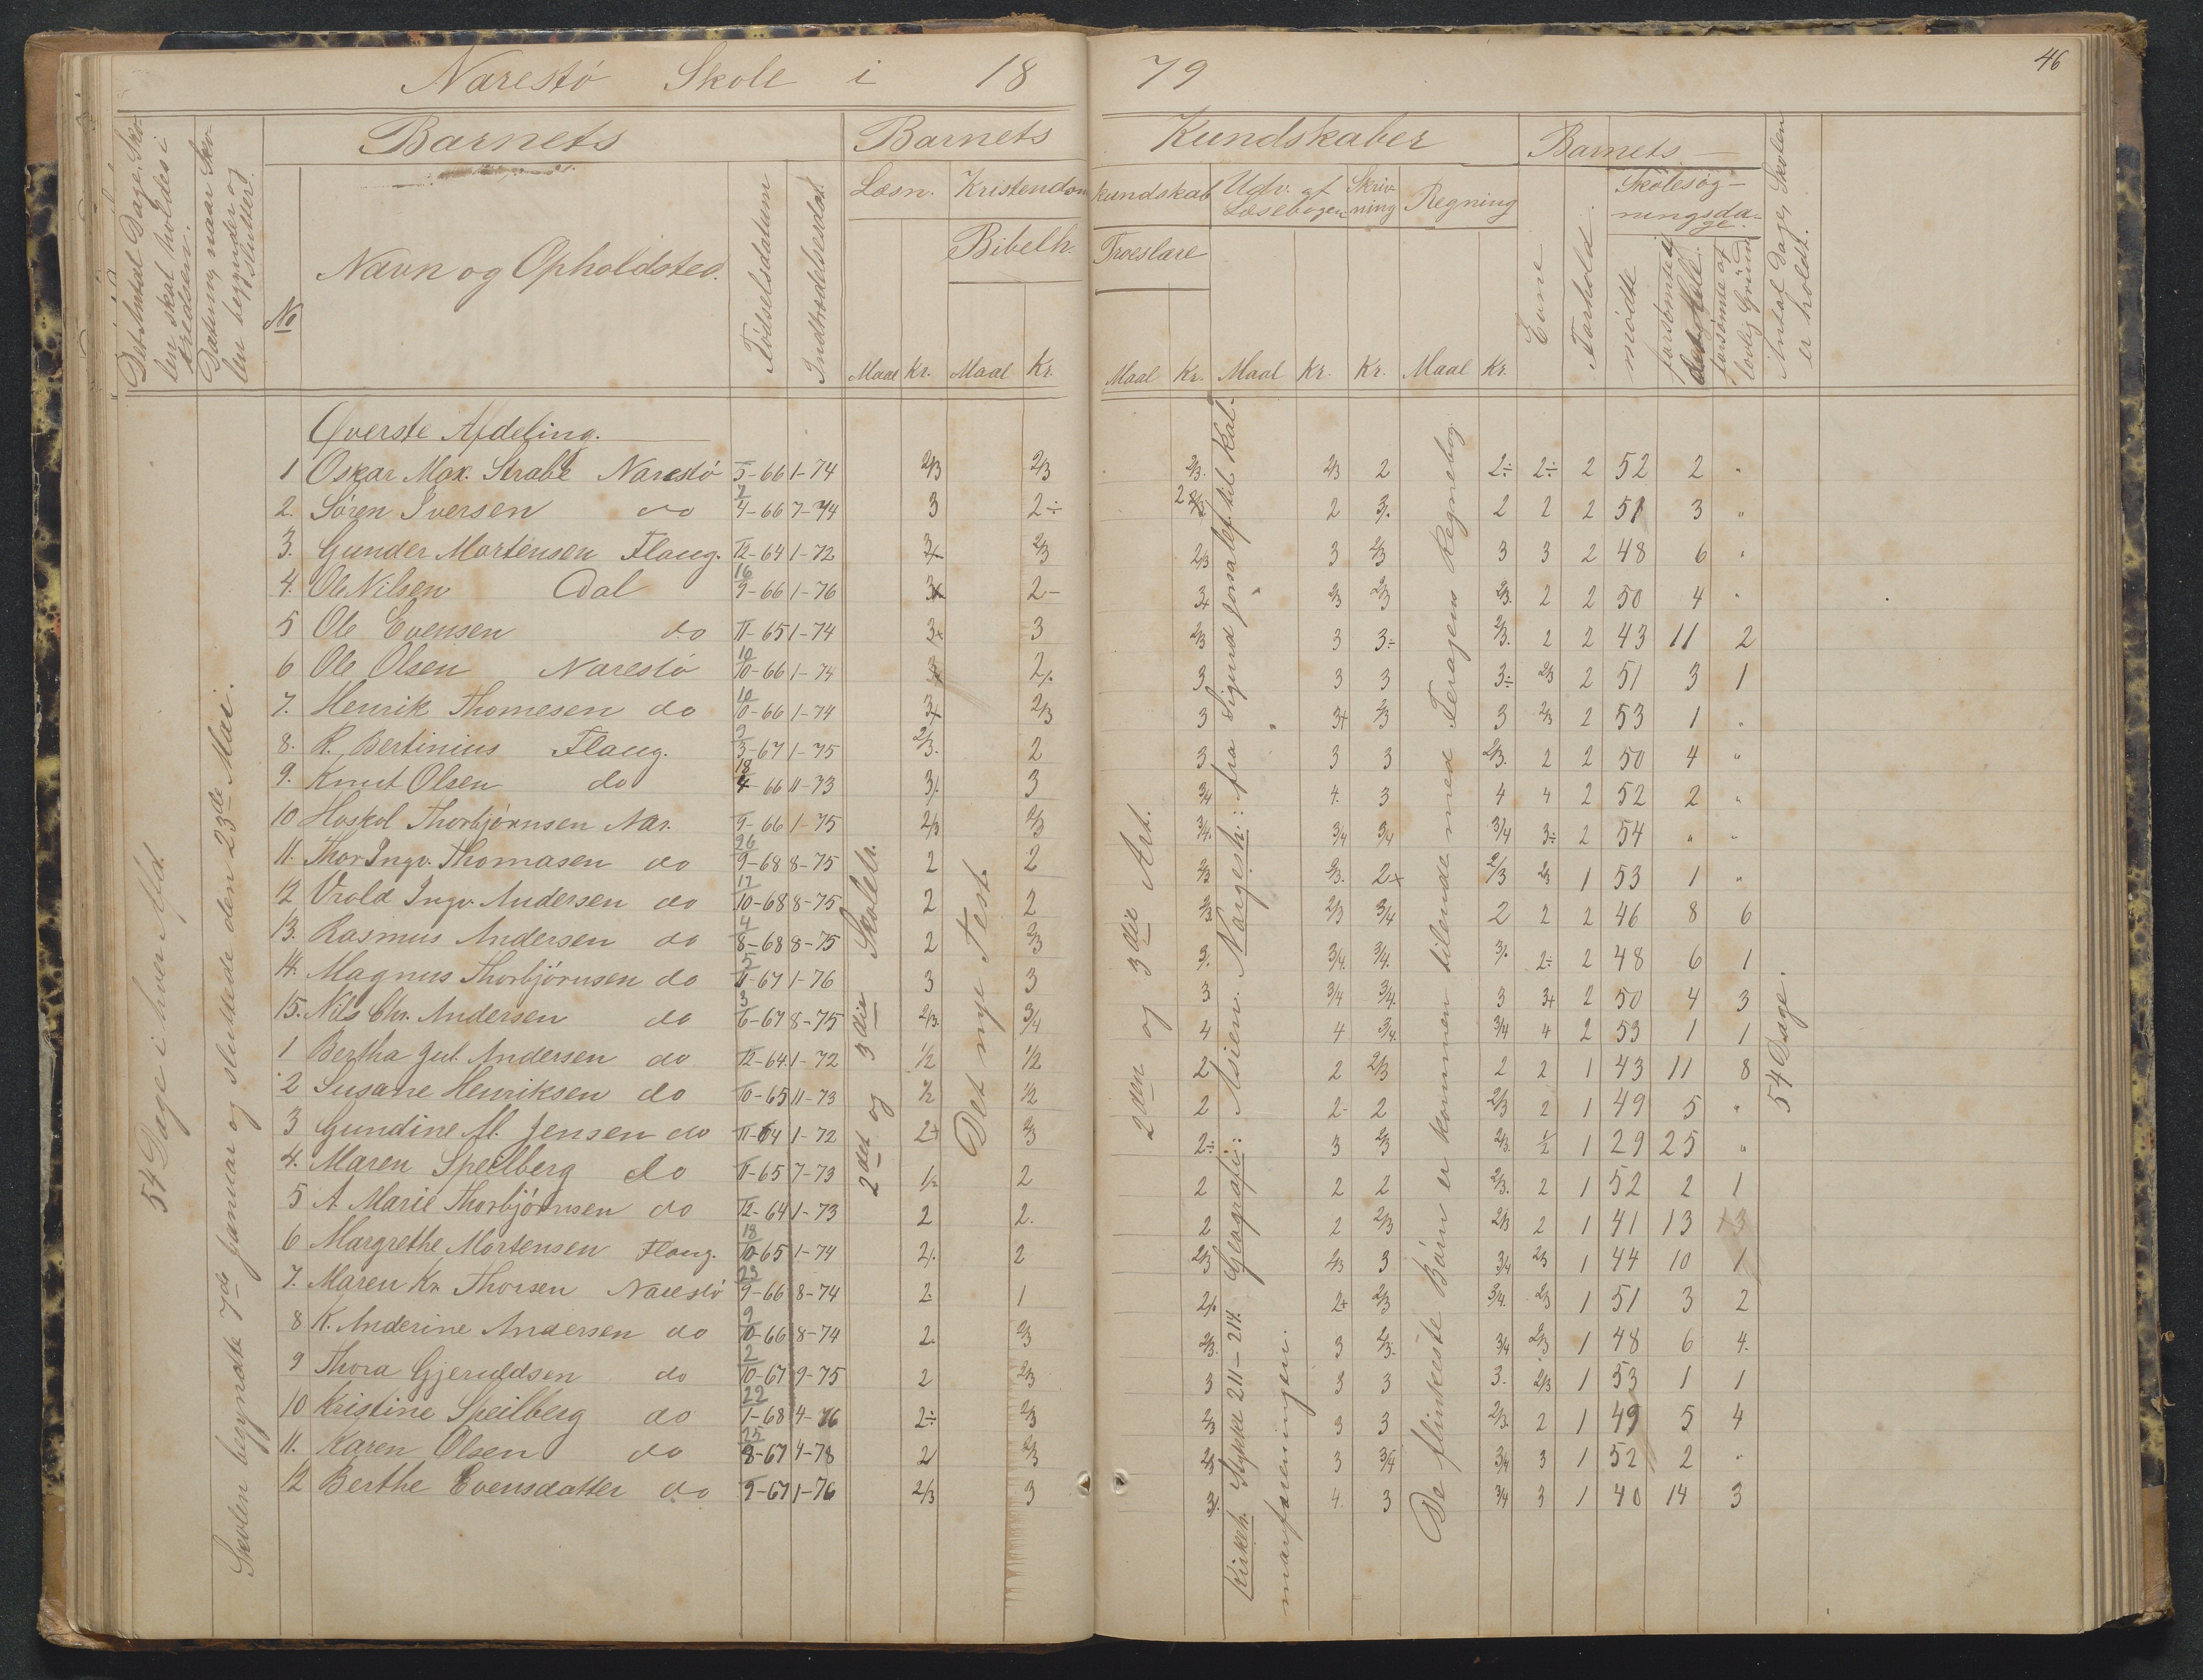 Narestö Skole i 1879
46
Det Antal Dage, Sko-
len skal holdes i
Kredsen.
Datum, naar Sko-
len begynder og
slutter.
Barnets
No
Navn og Opholdsted.
Födselsdatum
Indtrædelsesdat.
Barnets Kundskaber
Læsn.
Kristendomskundskab
Bibelh.
Troeslære
Udv. af
Læsebogen
Skriv-
ning
Regning
Maal Kr. Maal Kr. Maal Kr. Maal Kr. Kr. Maal Kr.
Barnets
Evne
Forhold.
Skolesøg-
ningsda-
ge.
mödte
forsömte i
det Hele.
forsömte af
lovlig Grund
Antal Dage, Skolen
er holdt.
54 Dage i hver Afd.
Skolen begyndte 7de Januar og sluttede den 23de Mai.
Överste Afdeling.
1 Oskar Max. Strabe Narestö 5-66 1-74 2/3 2/3 2/3. 2/3 2 2÷ 2÷ 2 52 2 "
2. Sören Iversen do 2/4-66 7-74 3 2÷ 2 3/. 2 2 2 51 3 "
3. Gunder Mortensen Flaug. 12-64 1-72 3+ 2/3 2/3 3 2/3 3 3 2 48 6 "
4. Ole Nilsen Dal 16/9-66 1-76 3+ 2- 3+ 2/3 2/3 2/3. 2 2 50 4 "
5 Ole Evensen do 11-65 1-74 3+ 3 2/3 3 3÷ 2/3. 2 2 43 11 2
6 Ole Olsen Narestö 10/10-66 1-74 2/. 3 3 3 3÷ 2/3 2 51 3 1
7. Henrik Thomesen do 10/10-66 1-74 3+ 2/3 3 3+ 2/3 3 2/3 2 53 1 "
8. R. Bertinius Flaug. 9/3-67 1-75 2/3. 2 3 3 3 2/3. 2 2 50 4 "
9. Knut Olsen do 18/4-66 11-73 3/. 3 3/4 4. 3 4 4 2 52 2 "
10 Hoskol Thorbjørnsen Nar. 9-66 1-75 2/3 2/3 3/4. 3/4 3/4 3/4 3÷ 2 54 " "
11. Thor Ingv. Thomasen do 26/9-68 8-75 2 2 2/3 2/3. 2+ 2/3 2/3 1 53 1 "
12 Vrold Ingv. Andersen do 17/10-68 8-75 2 2 2/3 2/3 3/4 2 2 2 46 8 6
13. Rasmus Andersen do 4/8-68 8-75 2 2/3 3. 3/4. 3/4. 3/. 2÷ 2 48 6 1
14. Magnus Thorbjörnsen do 5/11-67 1-76 3 3 3 3/4 3/4. 3 3+ 2 50 4 3
15. Nils Chr. Andersen do 3/6-67 8-75 2/3. 3/4 4 4 3/4. 3/4 4 2 53 1 1
1 Bertha Jul. Andersen do 12-64. 1-72 1/2 1/2 2 2 2/3 2 2 1 43 11 8
2 Susane Henriksen do 10-65 11-73 1/2 1/2 2 2- 2 2/3 2 1 49 5 "
3 Gundine M. Jensen do 11-64 1-72 2+ 2/3 2÷ 3 2/3 2/3. 1/2 1 29 25 "
4. Maren Speilberg do 11-65 7-73 2 2 2 2 2/3. 2 1 52 2 1
5 A. Marie Thorbjörnsen do 12-64 1-73 2 2. 2 2 2/3 2/3 2 1 41 13 13
6 Margrethe Mortensen Flaug. 18/10-65 1-74 2/. 2 2/3 2/3 3 3/4 2/3 1 44 10 1
7. Maren Kr. Thorsen Narestö 23/9-66 8-74 2. 1 2/. 2+ 2/3 3/4. 2/3 1 51 3 2
8. K. Anderine Andersen do 9/10-66 8-74 2. 2/3 2/3. 3 2/3. 3/4 2/3 1 48 6 4.
9 Thora Gjeruldsen do 2/10-67 9-75 2 2/3 3 3 3 3. 2/3 1 53 1 1
10 Kristine Speilberg do 22/1-68 4-76 2÷ 2/3 2/3 3 3 2/3. 2 1 49 5 4
11. Karen Olsen do 25/8-67 4-78 2 2/3 2/3 3 3/4 3/4 3 1 52 2 "
12 Berthe Evensdatter do 9-67 1-76 2/3 3 3/. 4. 3 3/4 3 1 40 14 3
2det og 3die Skoletr.
Det nye Test.
2den og 3die Art.
Kirkeh. Stykke 211-214. Geografi: Asien. Norgesh.: fra Sigurd Jorsalef. til Kal-
marforeningen.
De flinkeste Börn er kommen tilende med Feragens Regnebog.
54 Dage.